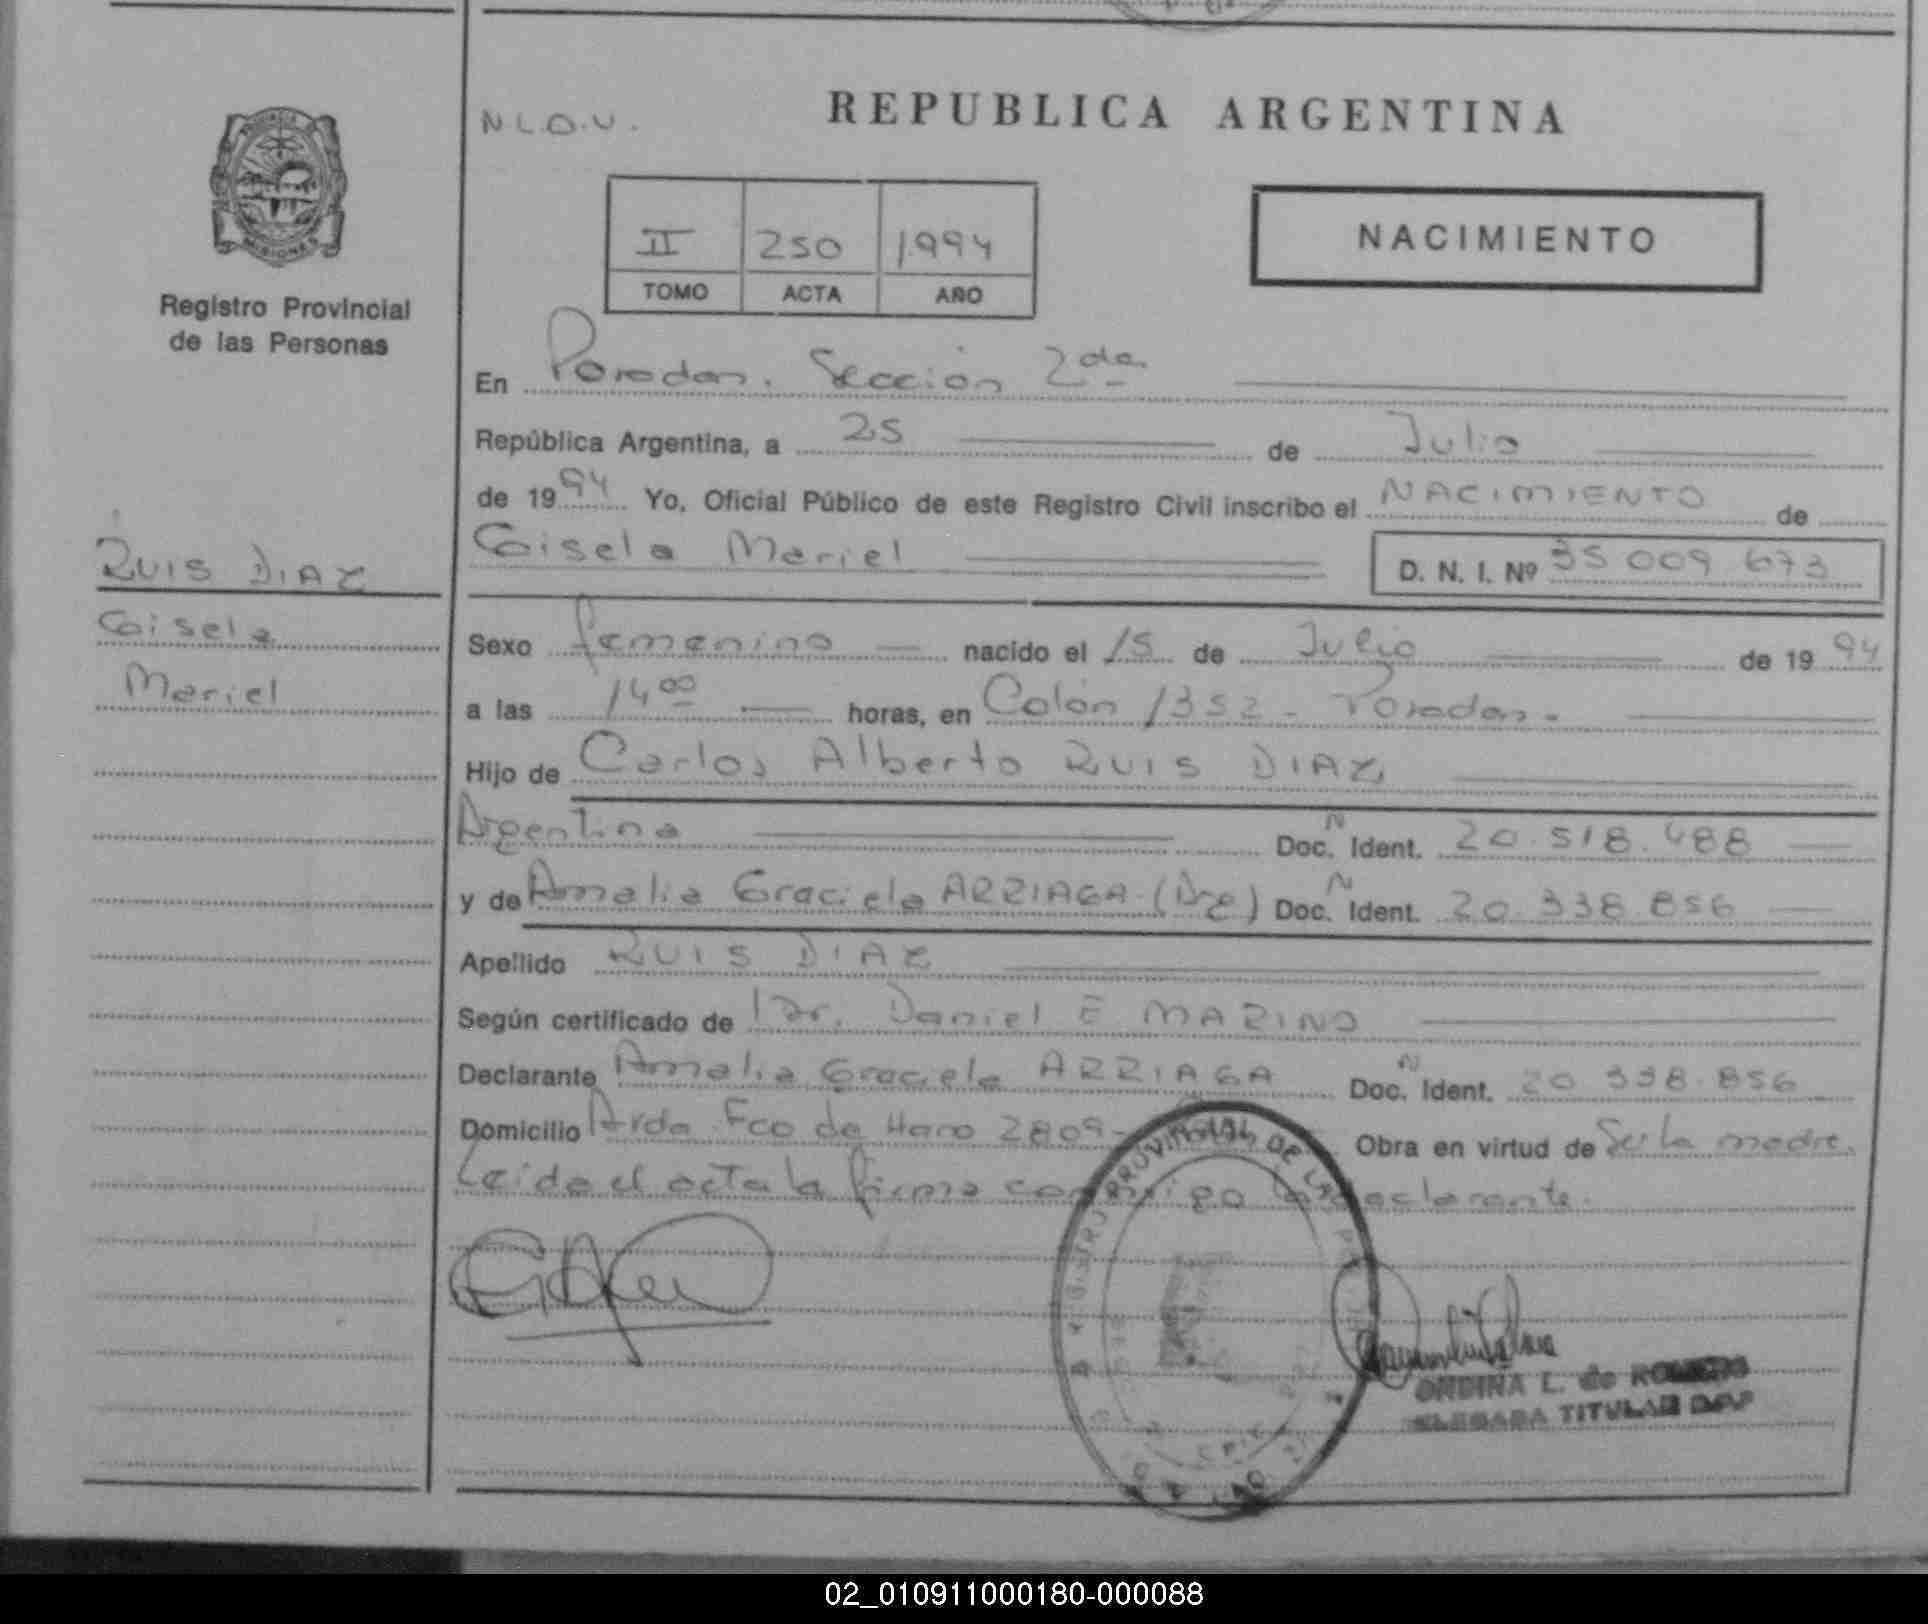 REPUBLICA ARGENTINA
N.L.O.V.
MISIONES
Registro Provincial
de las Personas
II 250 1.994
TOMO ACTA AÑO
NACIMIENTO
En Posadas. Sección 2da
República Argentina, a 25 de Julio
de 1994 Yo, Oficial Público de este Registro Civil inscribo el NACIMIENTO de
Gisela Mariel D. N. I. Nº 35 009 673
RUIS DIAZ
Gisela
Mariel
Sexo femenino nacido el 15 de Julio de 1994
a las 14 00 horas, en Colón 1352 - Posadas.
Hijo de Carlos Alberto RUIS DIAZ
Argentino Doc. N Ident. 20.518.488
y de Amalia Graciela ARRIAGA (Arg) Doc. N Ident. 20.338.856
Apellido RUIS DIAZ
Según certificado de Dr. Daniel E MARINO
Declarante Amalia Graciela ARRIAGA Doc. N Ident. 20 338.856
Domicilio Avda Fco de Haro 2809- Obra en virtud de Ser la madre.
Leida el acta la firma conmigo la declarante.
ONDINA L. de
TITULAR
02_010911000180-000088